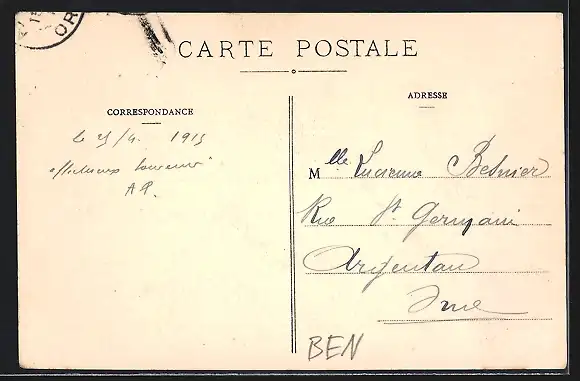 15
OR
CARTE POSTALE
CORRESPONDANCE
ADRESSE
Le 25/4 1915
affectueux souvenir
A P.
Mlle Lucienne Besnier
Rue St Germain
Argentan
Orne
BEN